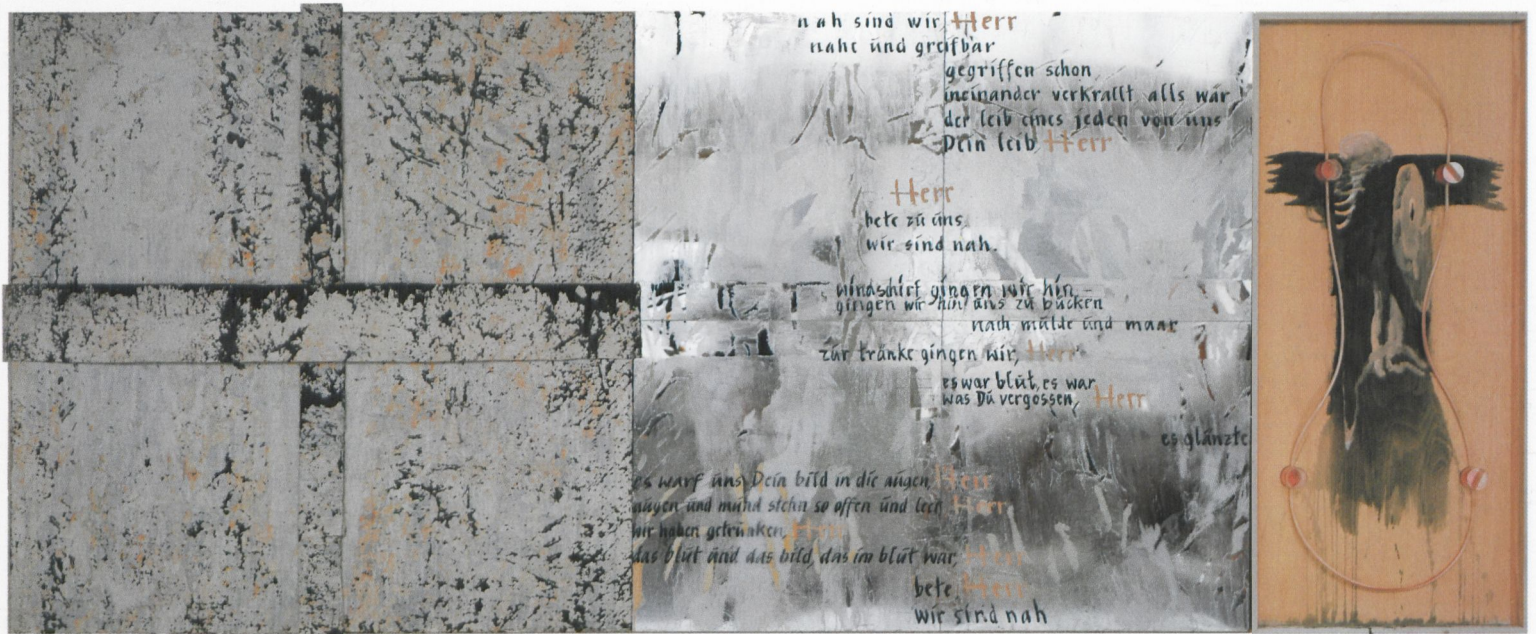 nah sind wir Herr
nahe und greifbar
gegriffen schon
ineinander verkrallt als wär
der leib eines jeden von uns
Dein leib Herr
Herr
bete zu uns
wir sind nah.
windschief gingen wir hin
gingen wir hin uns zu bücken
nach mulde und maar
zur tränke gingen wir, Herr
es war blut, es war
was Du vergossen, Herr
es glänzte
es warf uns Dein bild in die augen, Herr
augen und mund stehn so offen und leer, Herr
wir haben getrunken, Herr
das blut und das bild, das im blut war, Herr
bete, Herr
wir sind nah